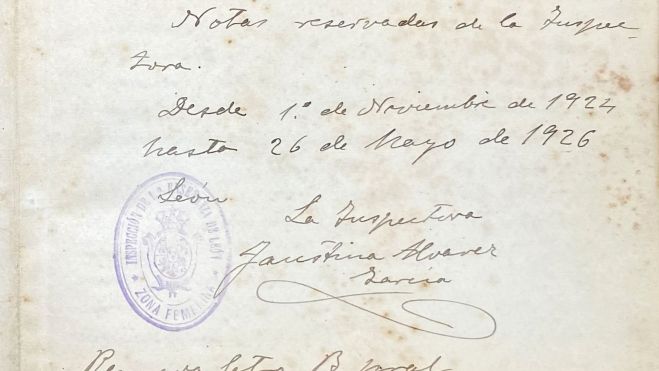 Notas reservadas de la Inspec-
tora.
Desde 1.º de Noviembre de 1924
hasta 26 de Mayo de 1926
León
La Inspectora
Faustina Alvarez
Garcia
INSPECCIÓN DE 1.ª ENSEÑANZA DE LEÓN
* ZONA FEMENINA *
letra B